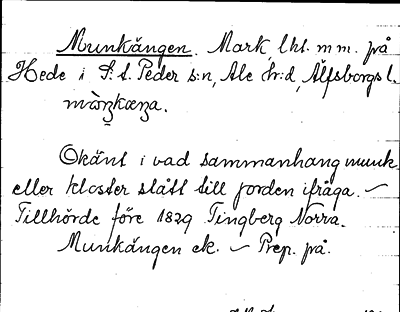 Munkängen. Mark, lht. m m. på
Hede i S:t Peder s:n, Ale h:d, Älfsborgs l.
Okänt i vad sammanhang munk
eller kloster stått till jorden ifråga. –
Tillhörde före 1829 Tingberg Norra.
Munkängen ek. – Prep. på.